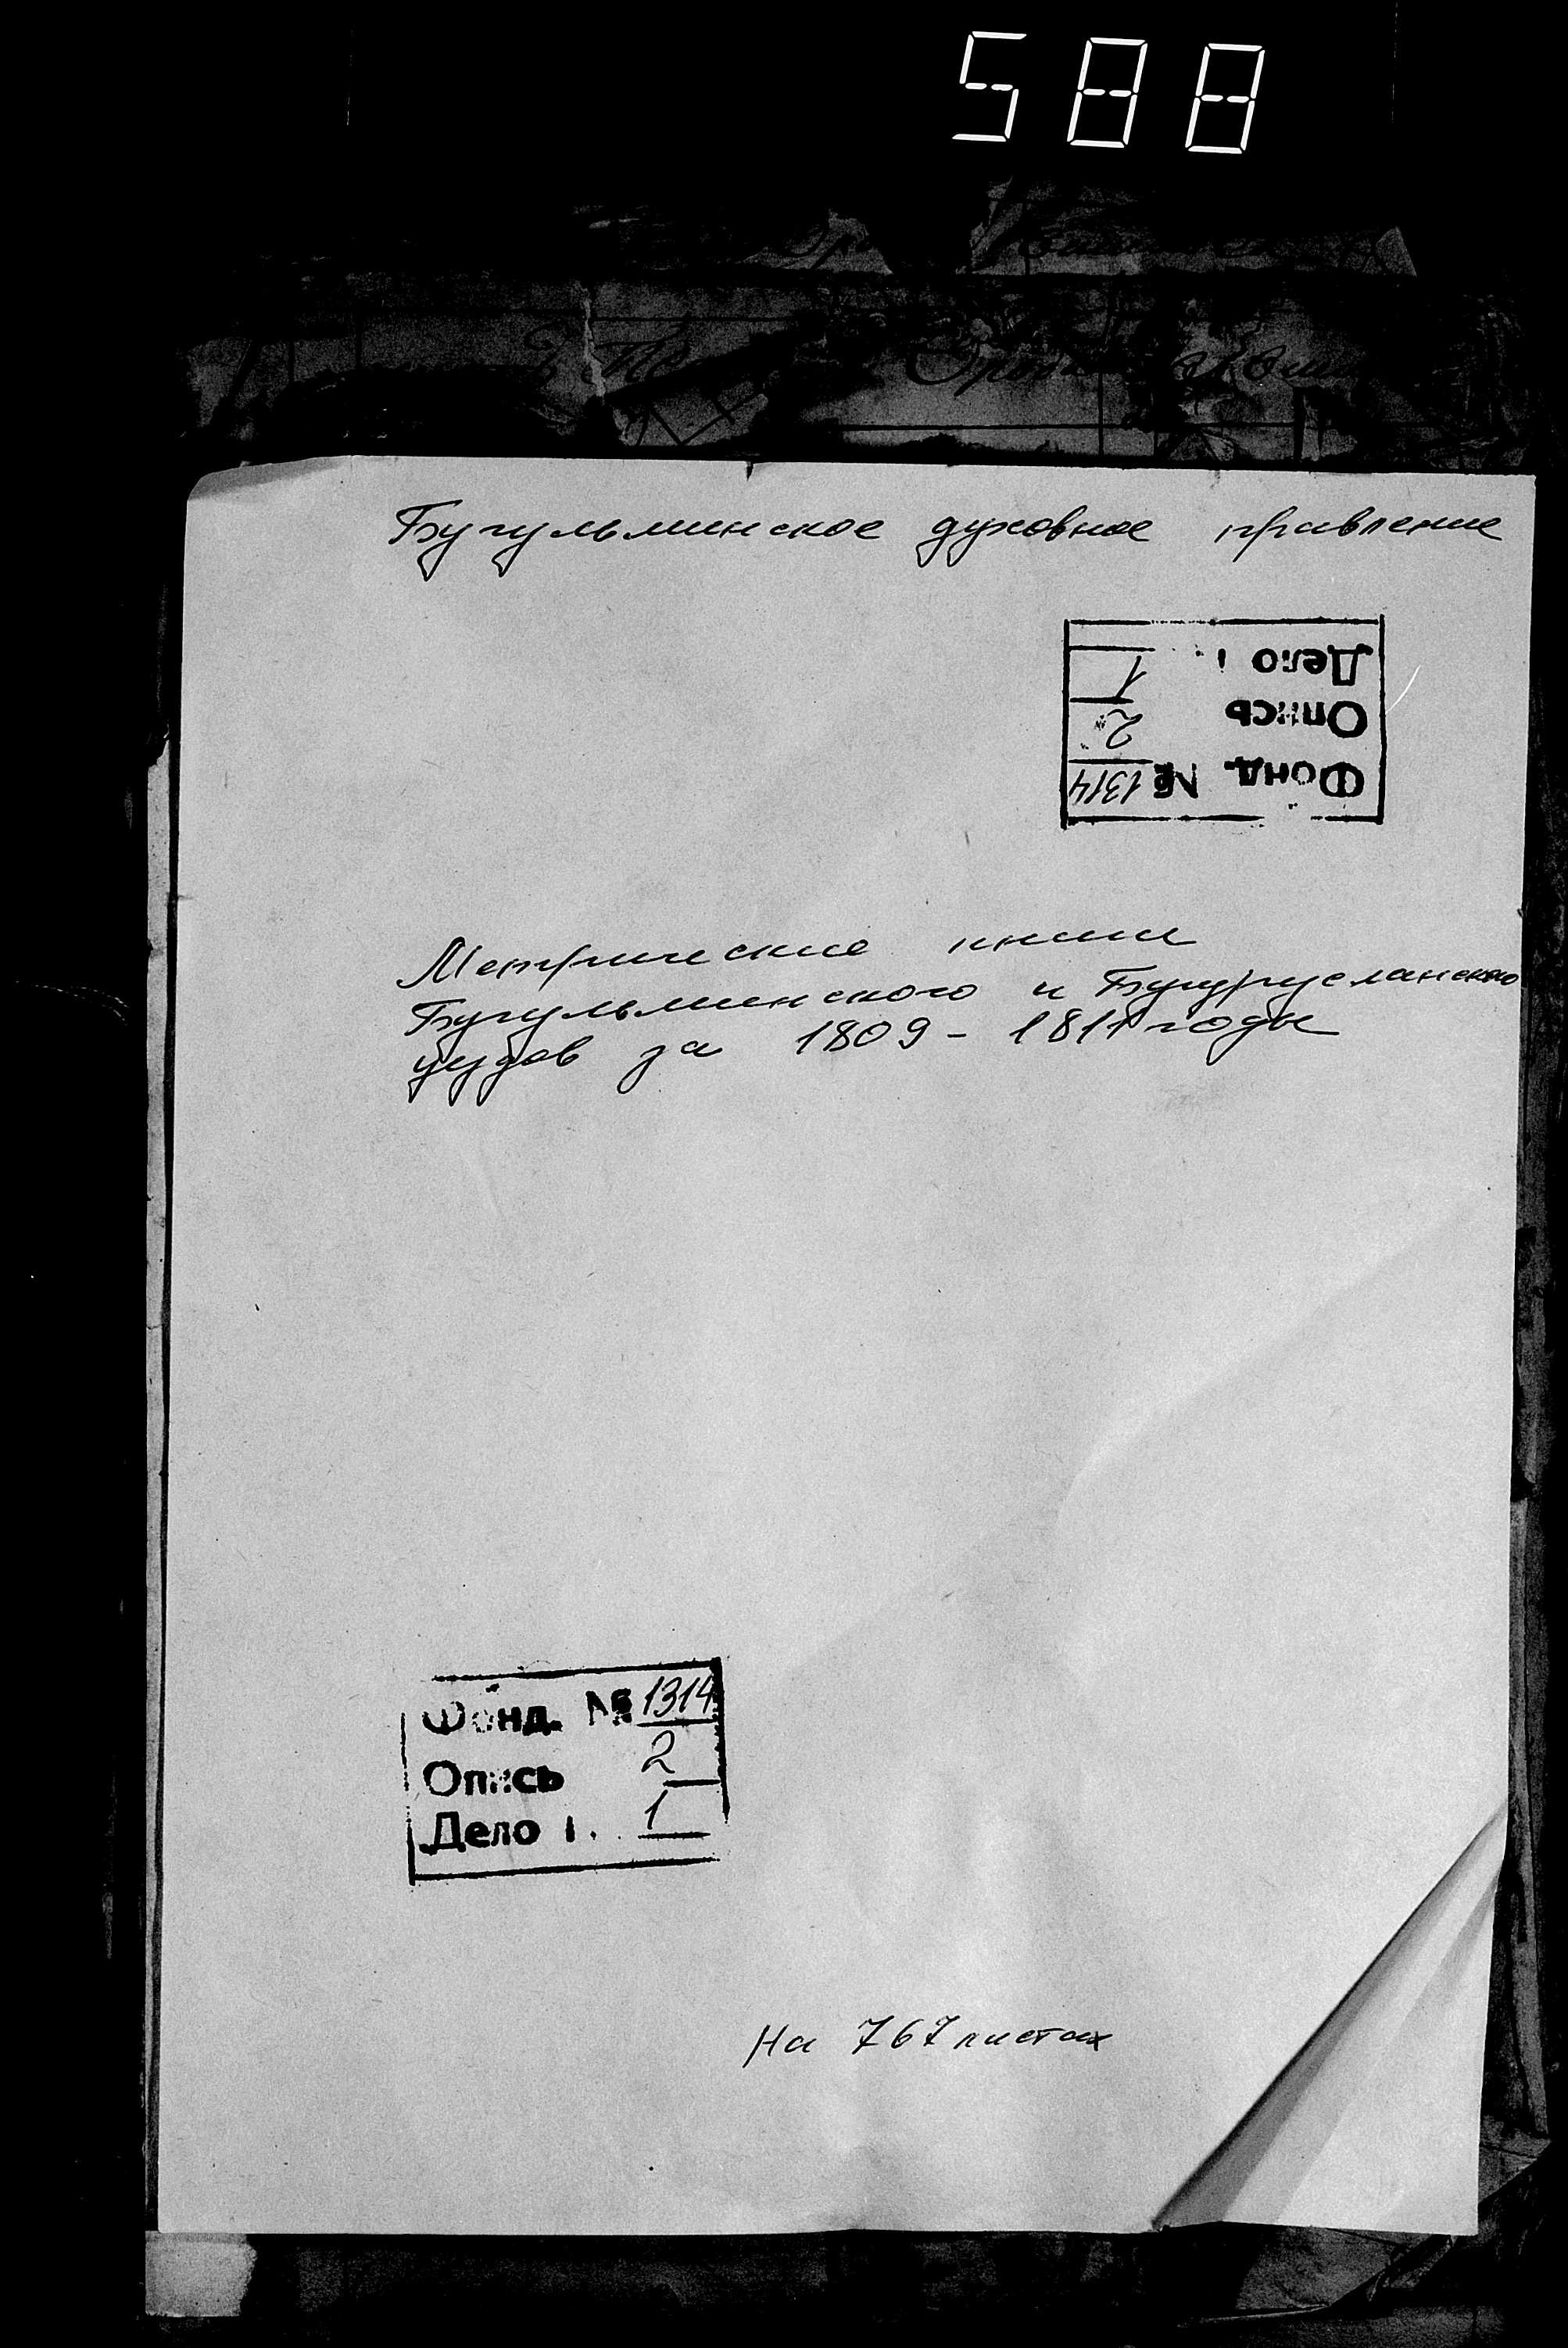 588
Бугульминское духовное правление
Фонд. № 1314
Опись 2
Дело 1
Метрические книги
Бугульминского и Бугурусланского
уездов за 1809 - 1811 годы
Фонд. № 1314
Опись 2
Дело 1
На 767 листах